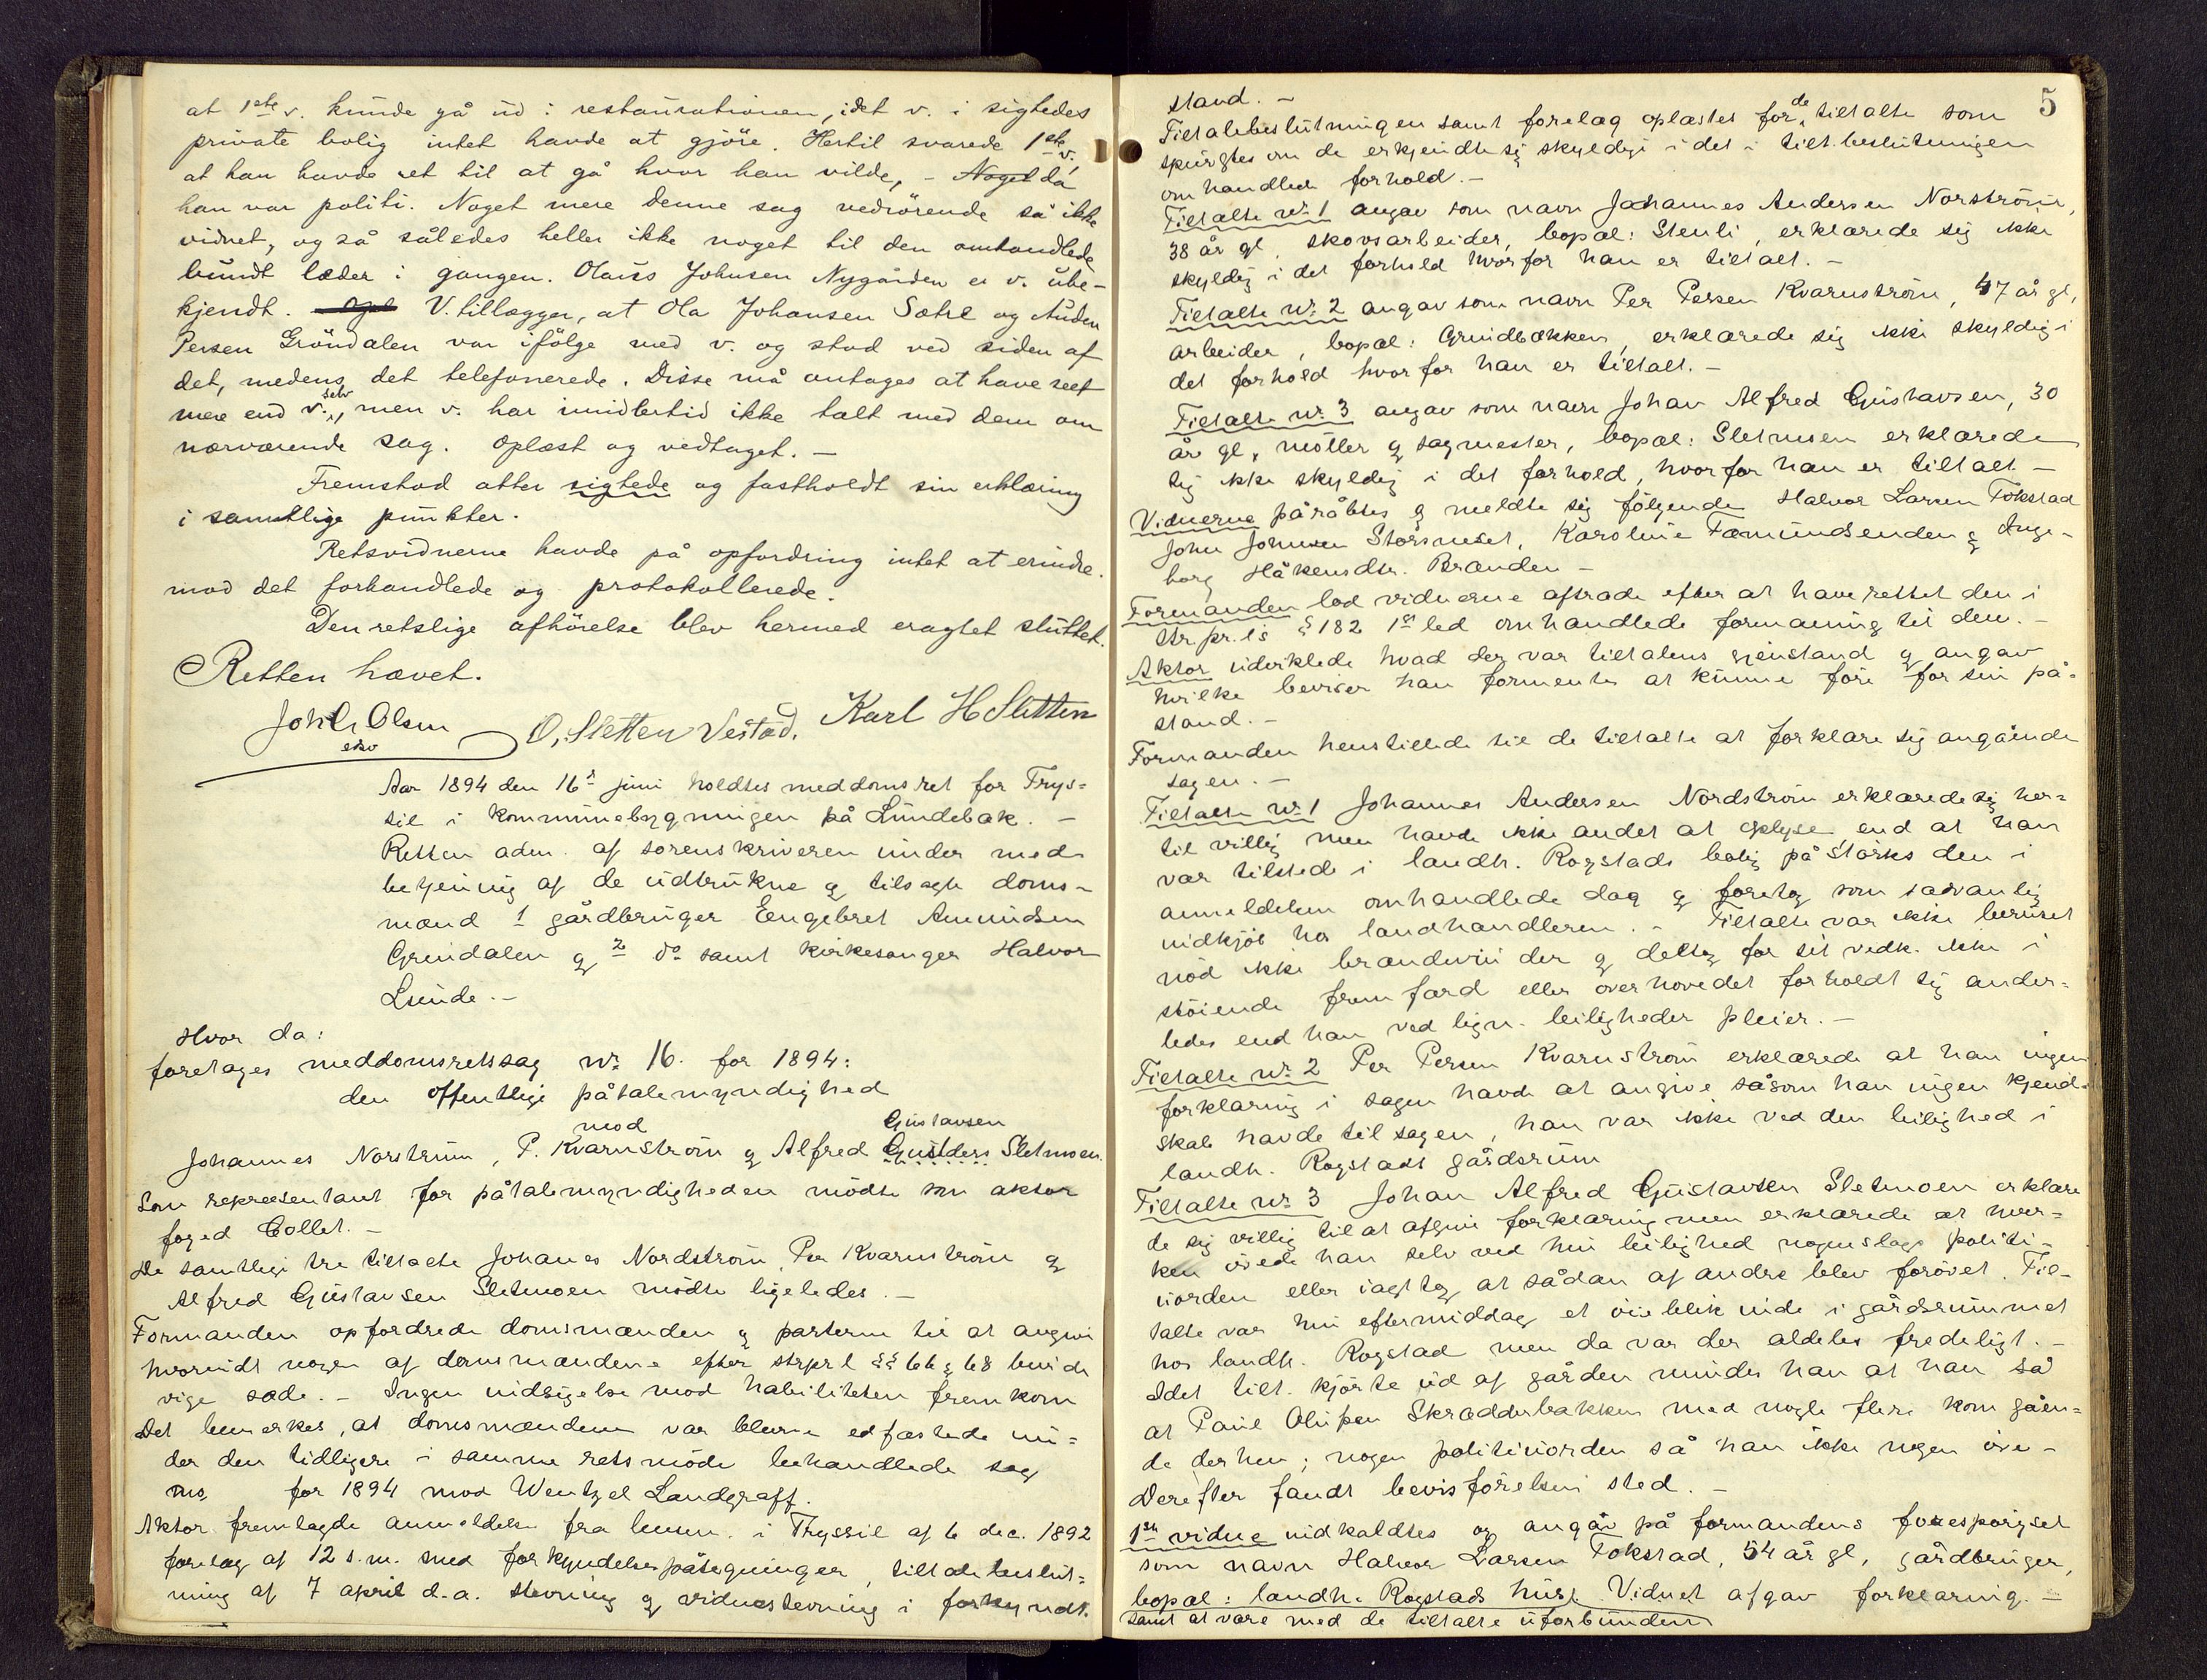 at 1ste v. kunde gå ud i restaurationen, idet v. i sigtedes
private bolig intet havde at gjöre. Hertil svarede 1ste v.,
at han havde ret til at gå hvor han vilde, - Noget da
han var politi. Noget mere denne sag vedrörende så ikke
vidnet, og så således heller ikke noget til den omhandlede
bundt læder i gangen. Olaus Johnsen Nygården er v. ube-
kjendt. V. tillægger, at Ola Johansen Sætre og Auden
Persen Gröndalen var ifölge med v. og stod ved siden af
det, medens det telefonerede. Disse må antages at have seet
mere end v. selv, men v. har imidlertid ikke talt med dem om
nærværende sag. Oplæst og vedtaget. -
Fremstod atter sigtede og fastholdt sin erklæring
i samtlige punkter.
Retsvidnerne havde på opfordring intet at erindre
mod det forhandlede og protokollerede.
Den retslige afhörelse blev hermed eragtet sluttet.
Retten hævet.
Joh Chr Olsen O. Sletten Vestad. Karl H Sletten
Aar 1894 den 16de juni holdtes meddomsret for Trys=
sil i kommunebygningen på Lundebæk. -
Retten adm. af sorenskriveren under med-
betjening af de udtrukne & tilsagte doms-
mænd 1 gårdbruger Eengebret Amundsen
Grendalen & 2 do samt kirkesanger Halvor
Lunde. -
Hvor da:
foretages meddomsretssag nr. 16. for 1894:
den offentlige påtalemyndighed
mod
Gustavsen
Johannes Norström, P. Kvarnström & Alfred Gulders Sletmoen.
Som repræsentant for påtalemyndigheden mödte som aktor
foged Collet. -
De samtlige tre tiltalte Johanes Nordström, Per Kvarnström &
Alfred Gustavsen Sletmoen mödte ligeledes. -
Formanden opfordrede domsmænden & parterne til at angive
hvorvidt nogen af domsmændene efter strprl §§ 66 & 68 burde
vige sæde. - Ingen indsigelse mod habiliteten fremkom
Det bemerkes, at domsmændene var blevne edfæstede un=
der den tidligere i samme retsmöde behandlede sag
no. for 1894 mod Wentzel Landgraff.
Aktor fremlagde anmeldelse fra lensm. i Tryssil af 6 dec. 1892
forelæg af 12 s.m. med forkyndelsespåtegninger, tiltalebeslut=
ning af 7 april d.a. stevning & vidnestevning i forkyndt
5
stand. -
Tiltalebeslutningen samt forelæg oplæstes for de tiltalte som
spurgtes om de erkjendte sig skyldige i det i tilt.beslutningen
omhandlede forhold. -
Tiltalte nr. 1 angav som navn Johannes Andersen Norström,
38 år gl, skovsarbeider, bopæl: Stenli, erklærede sig ikke
skyldig i det forhold hvorfor han er tiltalt. -
Tiltalte nr. 2 angav som navn Per Persen Kvarnström, 47 år gl,
arbeider, bopæl: Grundbækken, erklærede sig ikke skyldig i
det forhold hvorfor han er tiltalt. -
Tiltalte nr. 3 angav som navn Johan Alfred Gustavsen, 30
år gl, möller & sagmester, bopæl: Sletmoen erklærede
sig ikke skyldig i det forhold, hvorfor han er tiltalt -
Vidnerne påråbtes & meldte sig fölgende Halvor Larsen Tokstad
John Johnsen Störsneset, Karoline Fæmundsenden & Inge-
borg Håkensdtr. Brænden -
Formanden lod vidnerne aftræde efter at have rettet den i
str.pr.l's § 182 1ste led omhandlede formaning til dem. -
Aktor udviklede hvad der var tiltalens gjenstand & angav
hvilke beviser han formente at kunne före for sin på-
stand. -
Formanden henstillede til de tiltalte at forklare sig angående
sagen. -
Tiltalte nr. 1 Johannes Andersen Nordström erklærede sig her=
til villig men havde ikke andet at oplyse, end at han
var tilstede i landh. Rogstads bolig på Störks den i
anmeldelsen omhandlede dag & foretog som sædvanlig
indkjöb hos landhandleren. - Tiltalte var ikke beruset
nöd ikke brændevin der & deltog for sit vedk. ikke i
stöiende fremfærd eller overhovedet forholdt sig ander=
ledes end han ved lign. leiligheder pleier. -
Tiltalte nr. 2 Per Persen Kvarnström erklærede at han ingen
forklaring i sagen havde at angive såsom han ingen kjend-
skab havde til sagen, han var ikke ved den leilighed i
landh. Rogstads gårdsrum
Tiltalte nr. 3 Johan Alfred Gustavsen Sletmoen erklære
de sig villig til at afgive forklaring men erklærede at hver=
ken övede han selv ved hin leilighed nogenslags politi-
uorden eller iagttog at sådan af andre blev forövet. Til-
talte var hin eftermiddag et öieblik inde i gårdsrummet
hos landh. Rogstad men da var der aldeles fredeligt. -
Idet tilt. kjörte ud af gården mindes han at han så
at Paul Olufsen Skrædderbakken med nogle flere kom gåen=
de derhen; nogen politiuorden så han ikke nogen öve -
Derefter fandt bevisförelsen sted. -
1ste vidne indkaldtes og angav på formandens forespörgsel
som navn Halvor Larsen Tokstad, 54 år gl, gårdbruger,
bopæl: landh. Rogstads hus. Vidnet afgav forklaring. -
samt at være med de tiltalte uforbunden